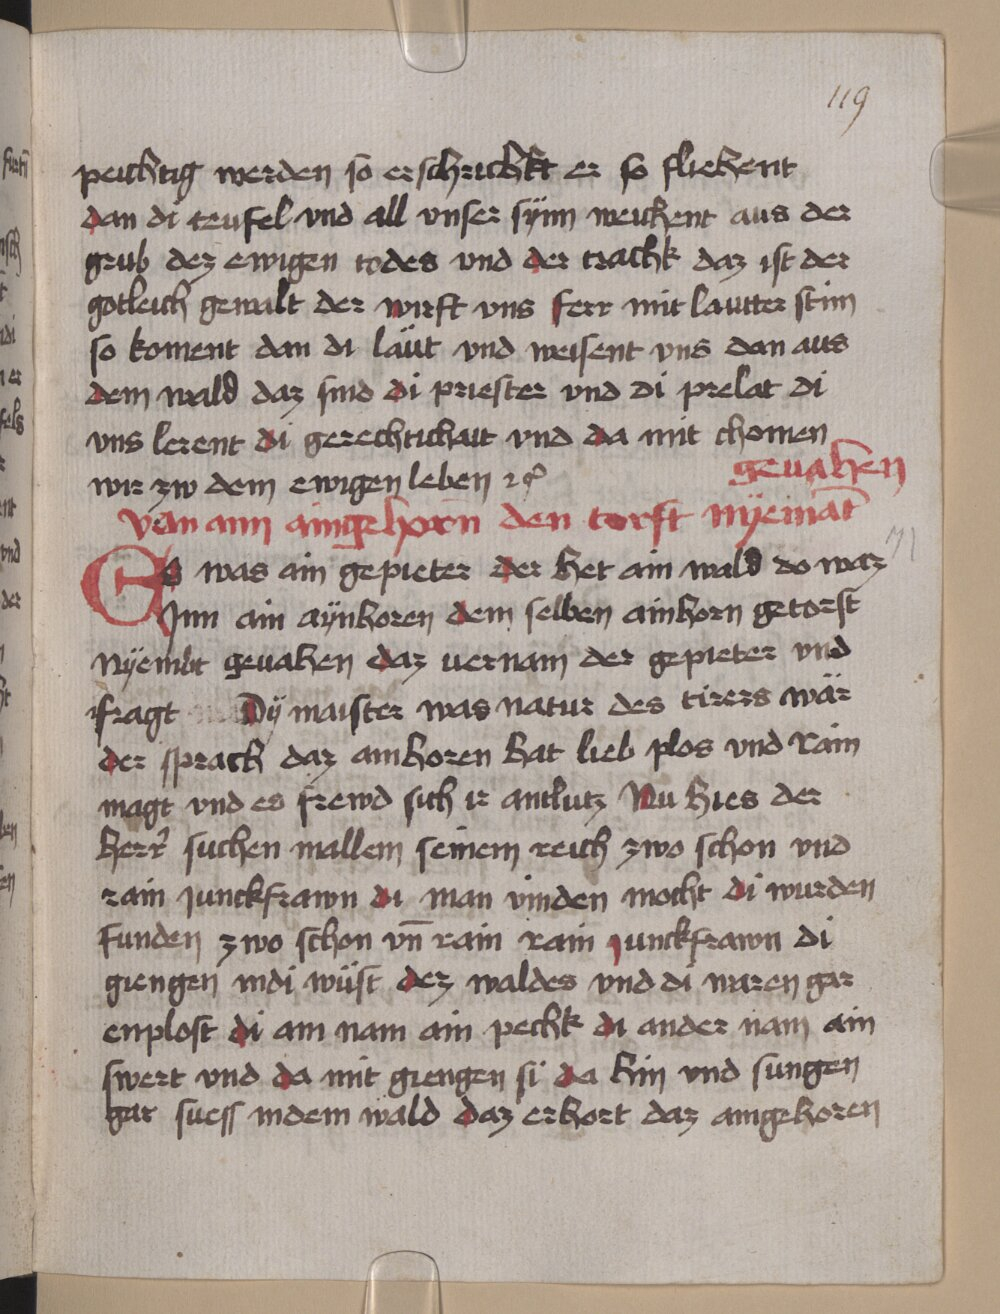 119
peichtig werden so erschrichkt er so fliehent
dan di teufel vnd all vnser synn weichent aus der
grub dez ewigen todes vnd der trachk daz ist der
gotleich gewalt der wirft vns ferr mit lautter stim
so koment dan di läut vnd weisent vns dan aus
dem wald daz sind di priester vnd di prelat di
vns lerent di gerechtichait vnd da mit chomen
wir zw dem ewigen leben
geuahen
von aim aingehorn den torst nÿemat
71
Es was ain gepieter der het ain wald do waz
Inn ain aÿnhoren dem selben ainhorn getorst
Nÿembt geuahen daz uernam der gepieter vnd
fragt Dÿ maister was natur des tirers wär
der sprach daz ainhoren hat lieb plos vnd Rain
magt vnd es frewd sich ir antlutz Nu hies der
herr suchen inallem seinem reich zwo schon vnd
rain junckfrawn di man vinden mocht di wurden
funden zwo schon vn̄ rain rain junckfrawn di
giengen indi wüst dez waldes vnd di waren gar
enplost di ain nam ain pechk di ander nam ain
swert vnd da mit giengen si da hin vnd sungen
gar suess indem wald daz erhort daz aingehoren